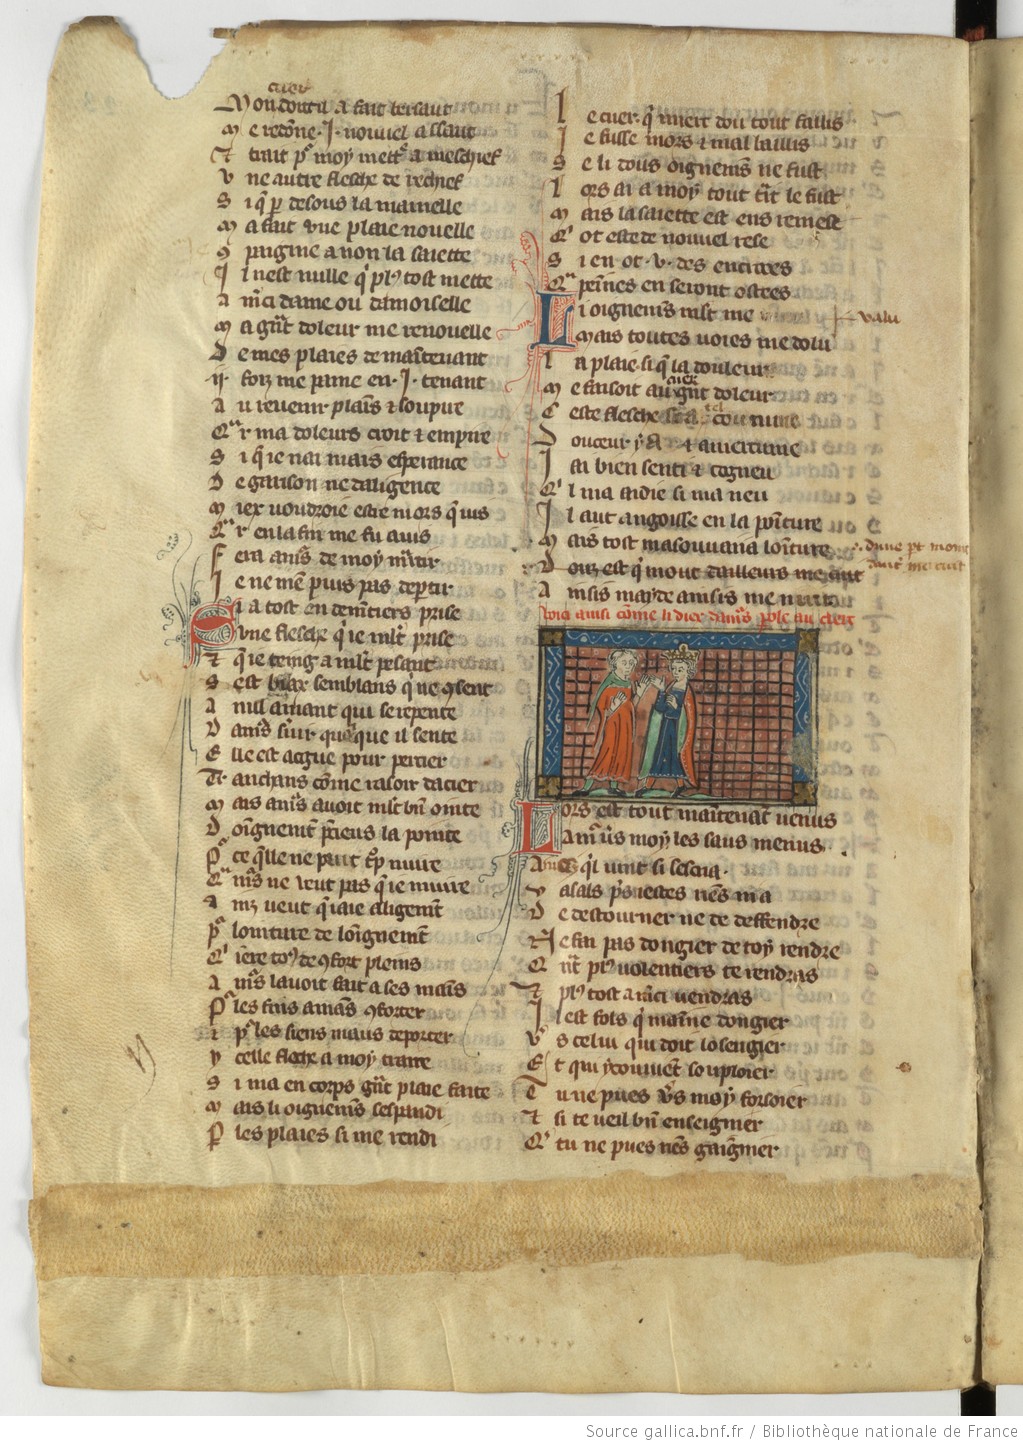 cuer
Mon doutil a fait bersaut
M e redone · I · nouvel assaut
Et trait pr moy mettre a meschief
V ne autre flesche de rechief
S i q̃ p desous la mamelle
M a fait une plaie nouvelle
9 paignie a non la saiette
I l nest nulle q̃ pl9 tost mette
A m̃ci dame ou damoiselle
M a gñt doleur me renouvelle
D e mes plaies de maĩtenant
·ii· foiz me pame en · I · tenant
A u revenir plaĩs & soupire
Qr ma doleurs croit & empire
S i q̃ ie nai mais esperance
D e garison ne daligence
M iex voudroie estre mors q̃ vis
Qr en la fin me fu avis
F era amrs de moy m̃tir
I e ne men̄ puis pas dep̃tir
Si a tost en dem̃tiers prise
Une flesche q̃ ie mlt prise
Et q̃ ie teing a mlt pesant
C est biax semblans q̃ ne 9sent
A nul amant qui se repente
D amrs svir que que il sente
E lle est ague pour percier
Trenchans cõme rasoir dacier
M ais amrs avoit mlt bñ ointe
D oingnemẽt p̃cieus la pointe
Pr ce q̃lle ne peut t̃p nuire
Qr amrs ne veut pas q̃ ie muire
A inz veut q̃ iaie aligemẽt
Pr lointure de loingnemẽt
Q̃ iere toz de 9fort pleins
A mrs lavoit fait a ses mains
Pr les fins amans 9forter
E t pr les siens maus deporter
Y celle fleche a moy traite
S i ma en corps gñt plaie faite
M ais li oignemẽs sespandi
P les plaies si me rendi
L e cuer · q̃ miert dou tout faillis
I e fusse mors & mal baillis
S e li dous oignemẽs ne fust
L ors ai a moy tout trĩt le fust
M ais la saiette est ens remest
Q̃ ot este de nouvel rese
S i en ot · v · des entixes
Qr peinnes en seront ostees
Li oignemẽs mlt me valu
Mais toutes voies me dolu
L a plaie si q̃ la douleur
M e faisoit muer gñt doleur
C este flesche a tel coustume
D ouceur y a & amertume
I ai bien senti & cogneu
Q̃l ma aidie si ma neu
I l aut angoisse en la poĩture
M ais tost masouvaria loĩture · dune pt moint
D ouz est q̃ mout dailleurs me cuit autr me cuit
A insis maide ainsis me
Voici ainsi cõme li diex damrs p̃ole au clerc
Lors est tout maĩtenãt venus
Li amrs moy les saus menus
Ainz q̃l vint si sescria
V asals pris iestes nẽs ni a
D e destourner ne de deffendre
N e fai pas dongier de toy rendre
Q̃nt pl9 volentiers te rendras
Et pl9 tost a m̃ci vendras
I l est fols q̃ maine dongier
Vs celui qui doit losengier
Et qui 9cuvent souploier
T u ne pues vs moy forsoier
Et si te veil bñ enseignier
Q̃ tu ne pues nẽs gaignier
Source gallica.bnf.fr / Bibliothèque nationale de France